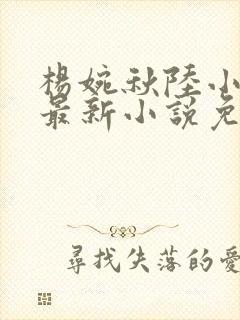 楊婉秋陸小
最新小說免
尋找失落的愛